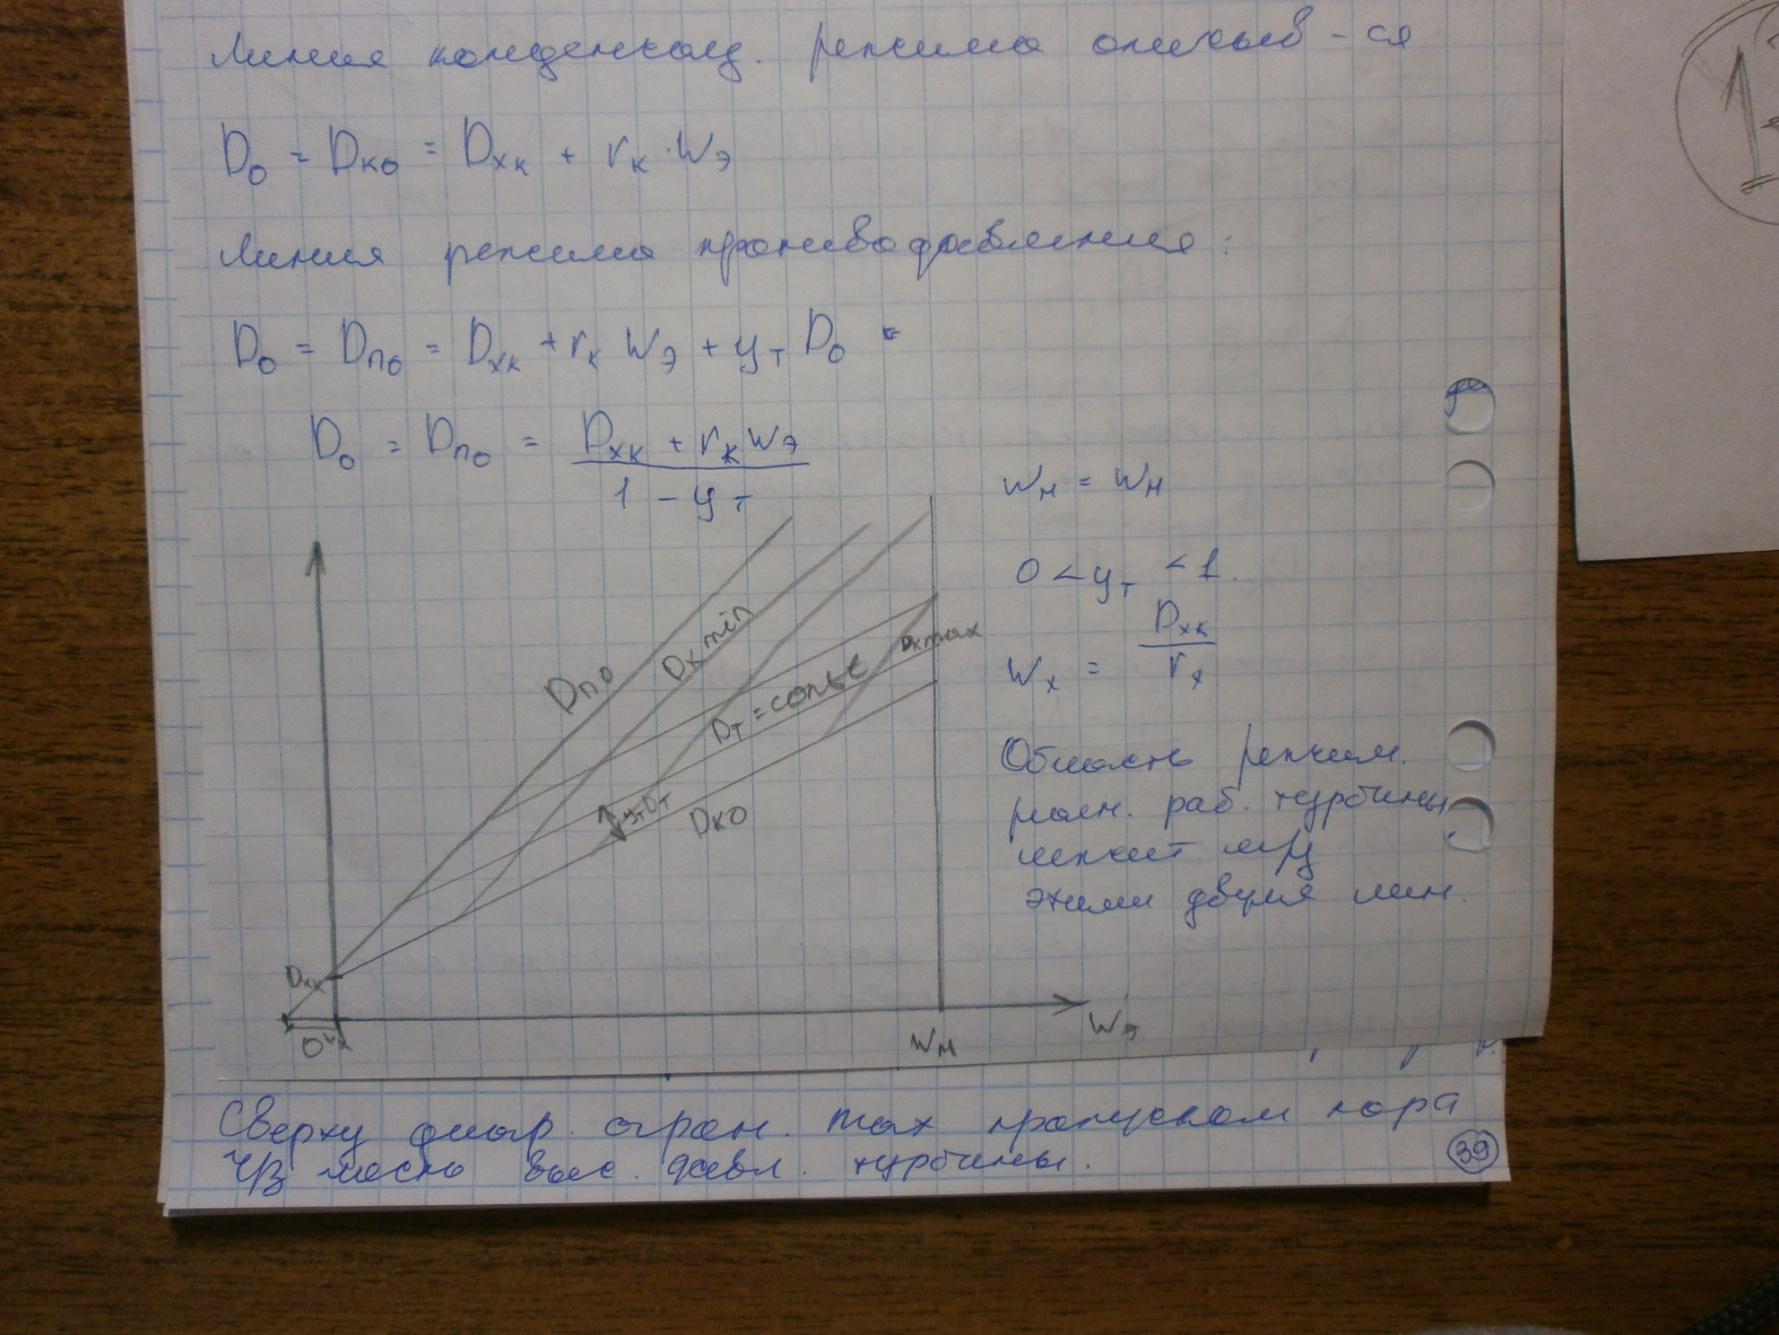 Линия конденсац. режима описыв-ся
D₀ = Dко = Dхк + rк · Wэ
Линия режима противодавления:
D₀ = Dпо = Dхк + rк Wэ + yт D₀
D₀ = Dпо = (Dхк + rк Wэ) / (1 - yт)
Wн = Wн
0 < yт < 1.
Wх = Dхк / rх
Область режим.
раб. турбины
лежит м/у
этими двумя лин.
Dпо
Dк min
Dк max
Dт = const
yтDт
Dко
Dхк
0
Wх
Wн
Wэ
Сверху диагр. огран. max пропуском пара
ч/з часть выс. давл. турбины.
39
1